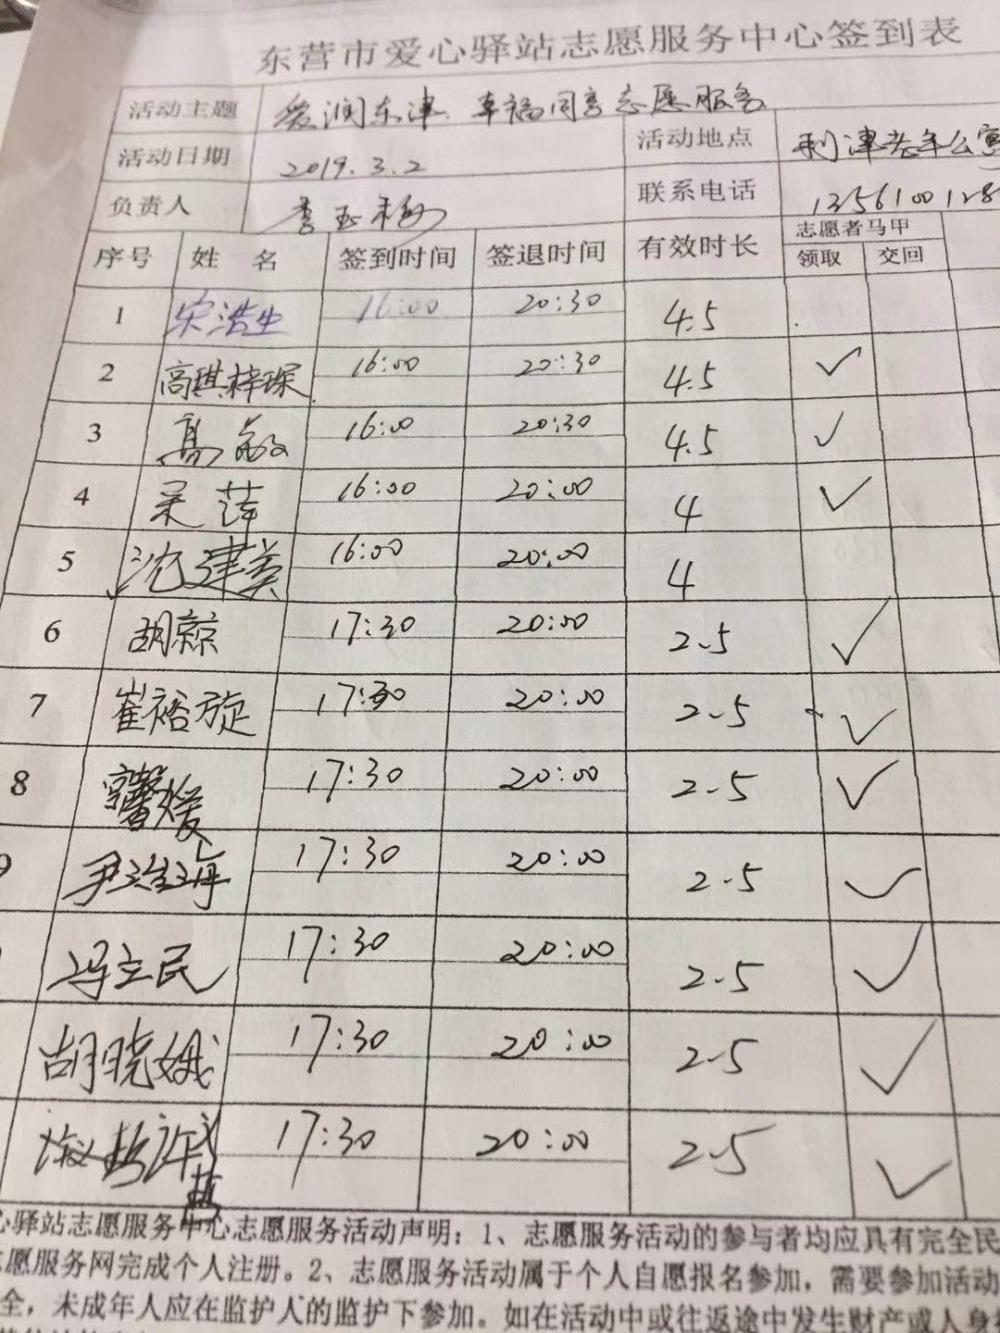 东营市爱心驿站志愿服务中心签到表
活动主题 爱润东津 幸福同享志愿服务
活动日期 2019.3.2 活动地点 利津老年公寓
负责人 李玉梅 联系电话 135610012
序号 姓 名 签到时间 签退时间 有效时长 志愿者马甲
领取 交回
1 宋浩生 16:00 20:30 4.5
2 高琪梓琛 16:00 20:30 4.5 ✓
3 高敏 16:00 20:30 4.5 ✓
4 吴萍 16:00 20:00 4 ✓
5 沈建美 16:00 20:00 4
6 胡琼 17:30 20:00 2.5 ✓
7 崔裕旋 17:30 20:00 2.5 ✓
8 17:30 20:00 2.5 ✓
9 尹 17:30 20:00 2.5 ✓
冯立民 17:30 20:00 2.5 ✓
胡晓娥 17:30 20:00 2.5 ✓
17:30 20:00 2.5 ✓
心驿站志愿服务中心志愿服务活动声明：1、志愿服务活动的参与者均应具有完全民
志愿服务网完成个人注册。2、志愿服务活动属于个人自愿报名参加，需要参加活动
全，未成年人应在监护人的监护下参加。如在活动中或往返途中发生财产或人身